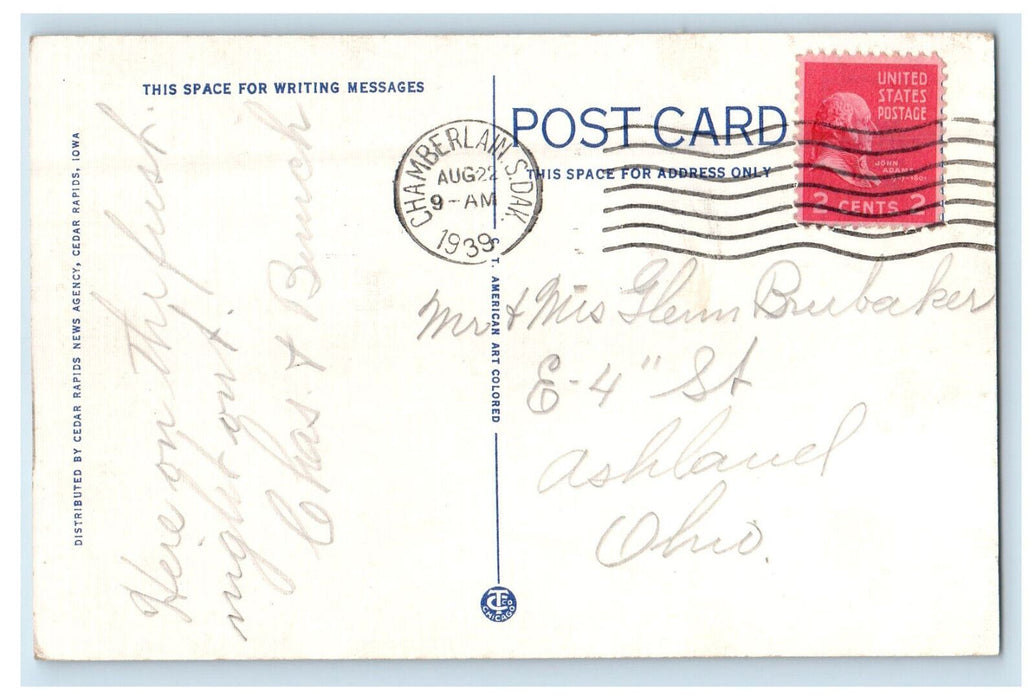 THIS SPACE FOR WRITING MESSAGES
POST CARD
THIS SPACE FOR ADDRESS ONLY
UNITED
STATES
POSTAGE
JOHN
ADAMS
2 CENTS 2
CHAMBERLAIN, S. DAK
AUG 22
9-AM
1939
DISTRIBUTED BY CEDAR RAPIDS NEWS AGENCY, CEDAR RAPIDS, IOWA
Here on the first
night out.
Chas. & Bunch
C. T. AMERICAN ART COLORED
Mr & Mrs Glenn Brubaker
E-4" St
Ashland
Ohio.
CHICAGO